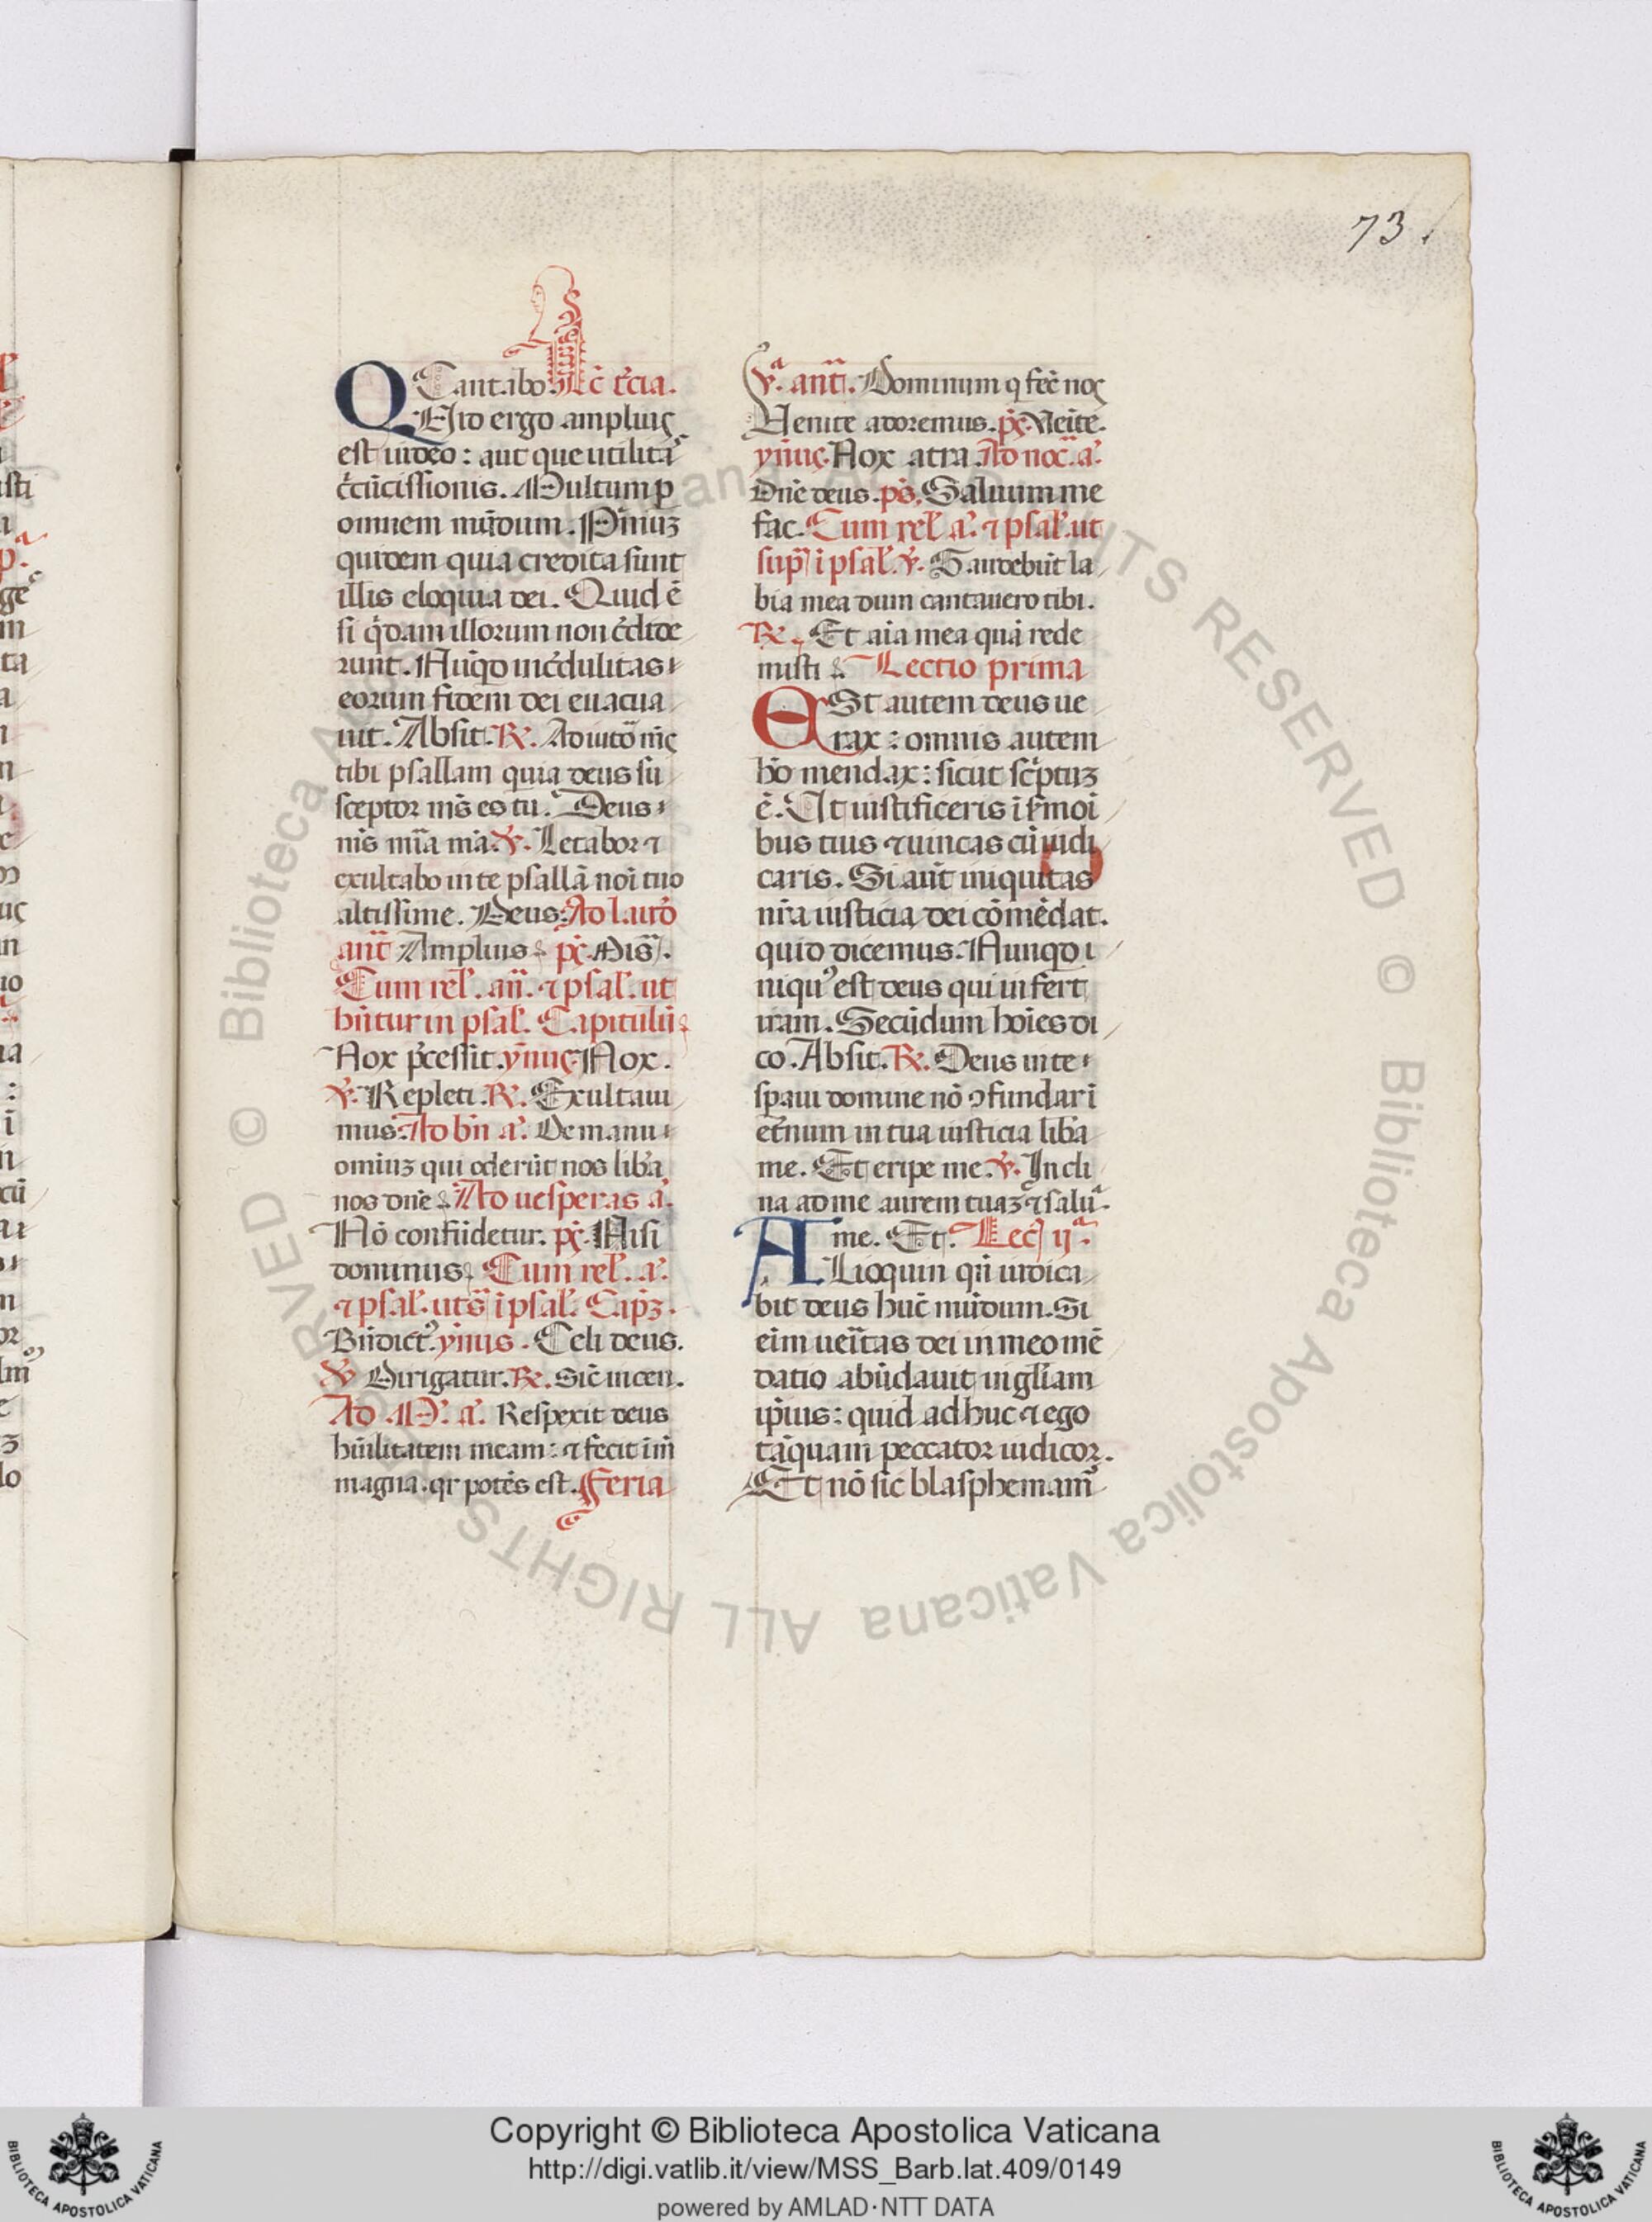 73.
Cantabo. Lc̄ t̄cia.
QVid ergo amplius
est iudeo: aut que utilita
c̄cūcissionis. Multum p̱
omnem mūdum. P̄imuꝫ
quidem quia credita sunt
illis eloquia dei. Quid ē
si q̄dam illorum non c̄dide
runt. Nūqd incr̄dulitas
eorum fidem dei euacua
uit. Absit. R̷. Adiutō mȩ
tibi psallam quia deus su
sceptor ms̄ es tu. Deus
ms̄ mīa mā. V̷. Letabor ⁊
exultabo in te psallā noī tuo
altissime. Deus. Ad laud̄
ant̄ Amplius. ps̄. Mis̄.
Cum rel̄. añ. ⁊ psal̄. ut
hn̄tur in psal̄. Capitulū
Nox p̄cessit. ymȩ. Nox.
V̷. Repleti. R̷. Exultaui
mus. Ad bn̄ a. De manu
omiuꝫ qui oderūt nos lib̄a
nos dn̄e. Ad uesperas a.
Nō confūdetur. ps̄. Nisi
dominus. Cum rel̄. a.
⁊ psal̄. ut s̄ ī psal̄. Cap̄ꝫ.
Bn̄dict9. ymus. Celi deus.
V̷ Dirigatur. R̷. Sic̄ incen.
Ad M. a. Respexit deus
hūilitatem meam: ⁊ fecit im̄
magna. qr potēs est. Feria
v.ᵃ ant̄. Dominum q fec̄ nos
Venite adoremus. ps̄. Veīte.
ymȩ. Nox atra. Ad noc̄. a.
Dn̄e deus. ps̄. Saluum me
fac. Cum rel̄ a. ⁊ psal̄. ut
sup̄ ī psal̄. V̷. Gaudebūt la
bia mea dum cantauero tibi.
R̷. Et aīa mea quā rede
misti. Lectio prima
ESt autem deus ue
rax: omnis autem
hō mendax: sicut sc̄ptuꝫ
ē. Ut iustificeris ī s̄moī
bus tuis ⁊ uincas cū iudi
caris. Si aūt iniquitas
nr̄a iusticia dei cōmēdat.
quid dicemus. Nunqd i
niqu9 est deus qui infert
iram. Secūdum hoīes di
co. Absit. R̷. Deus in te
spaui domine nō ꝯfundar ī
et̄num in tua iusticia lib̄a
me. Et eripe me. V̷. Incli
na ad me aurem tuaꝫ ⁊ salua
me. Et. Lec̄ ij.ᵃ
ALioquin qn̄ iudica
bit deus huc̄ mūdum. Si
eīm ueītas dei in meo mē
datio abūdauit in gl̄iam
ip̄ius: quid adhuc ⁊ ego
tāquam peccator iudicor.
Et nō sic blasphemam9
Copyright © Biblioteca Apostolica Vaticana
http://digi.vatlib.it/view/MSS_Barb.lat.409/0149
powered by AMLAD·NTT DATA
BIBLIOTECA APOSTOLICA VATICANA
BIBLIOTECA APOSTOLICA VATICANA
© Biblioteca Apostolica Vaticana ALL RIGHTS RESERVED © Biblioteca Apostolica Vaticana ALL RIGHTS RESERVED